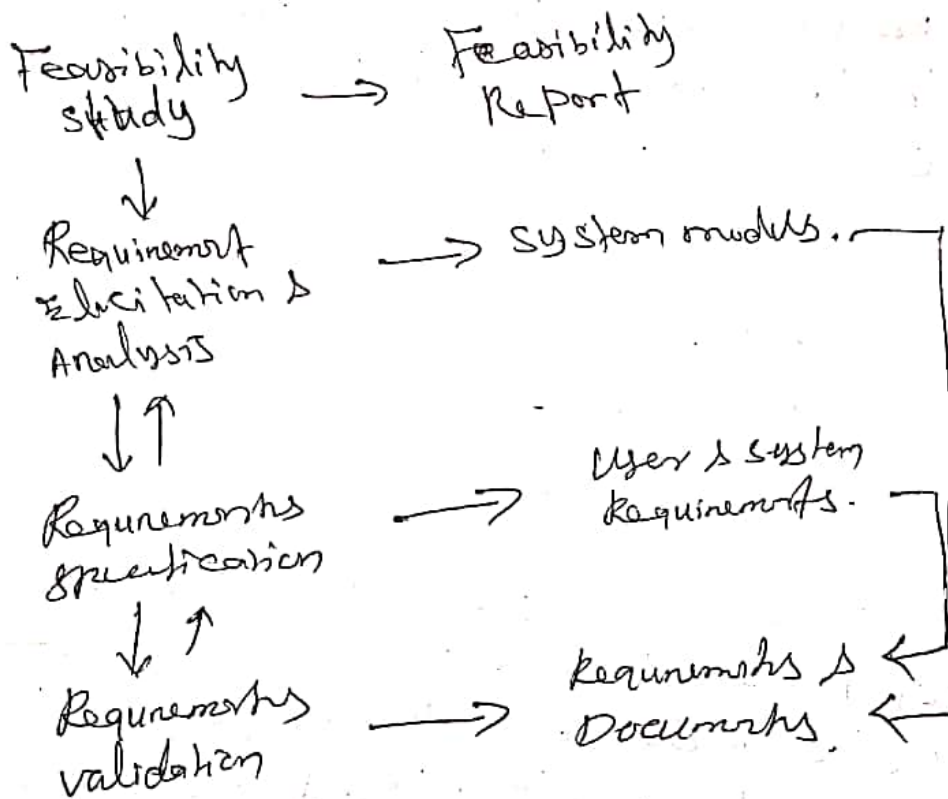 Feasibility
study
Feasibility
Report
Requirement
Elicitation &
Analysis
system models.
Requirements
specification
User & system
Requirements.
Requirements
validation
Requirements &
Documents.